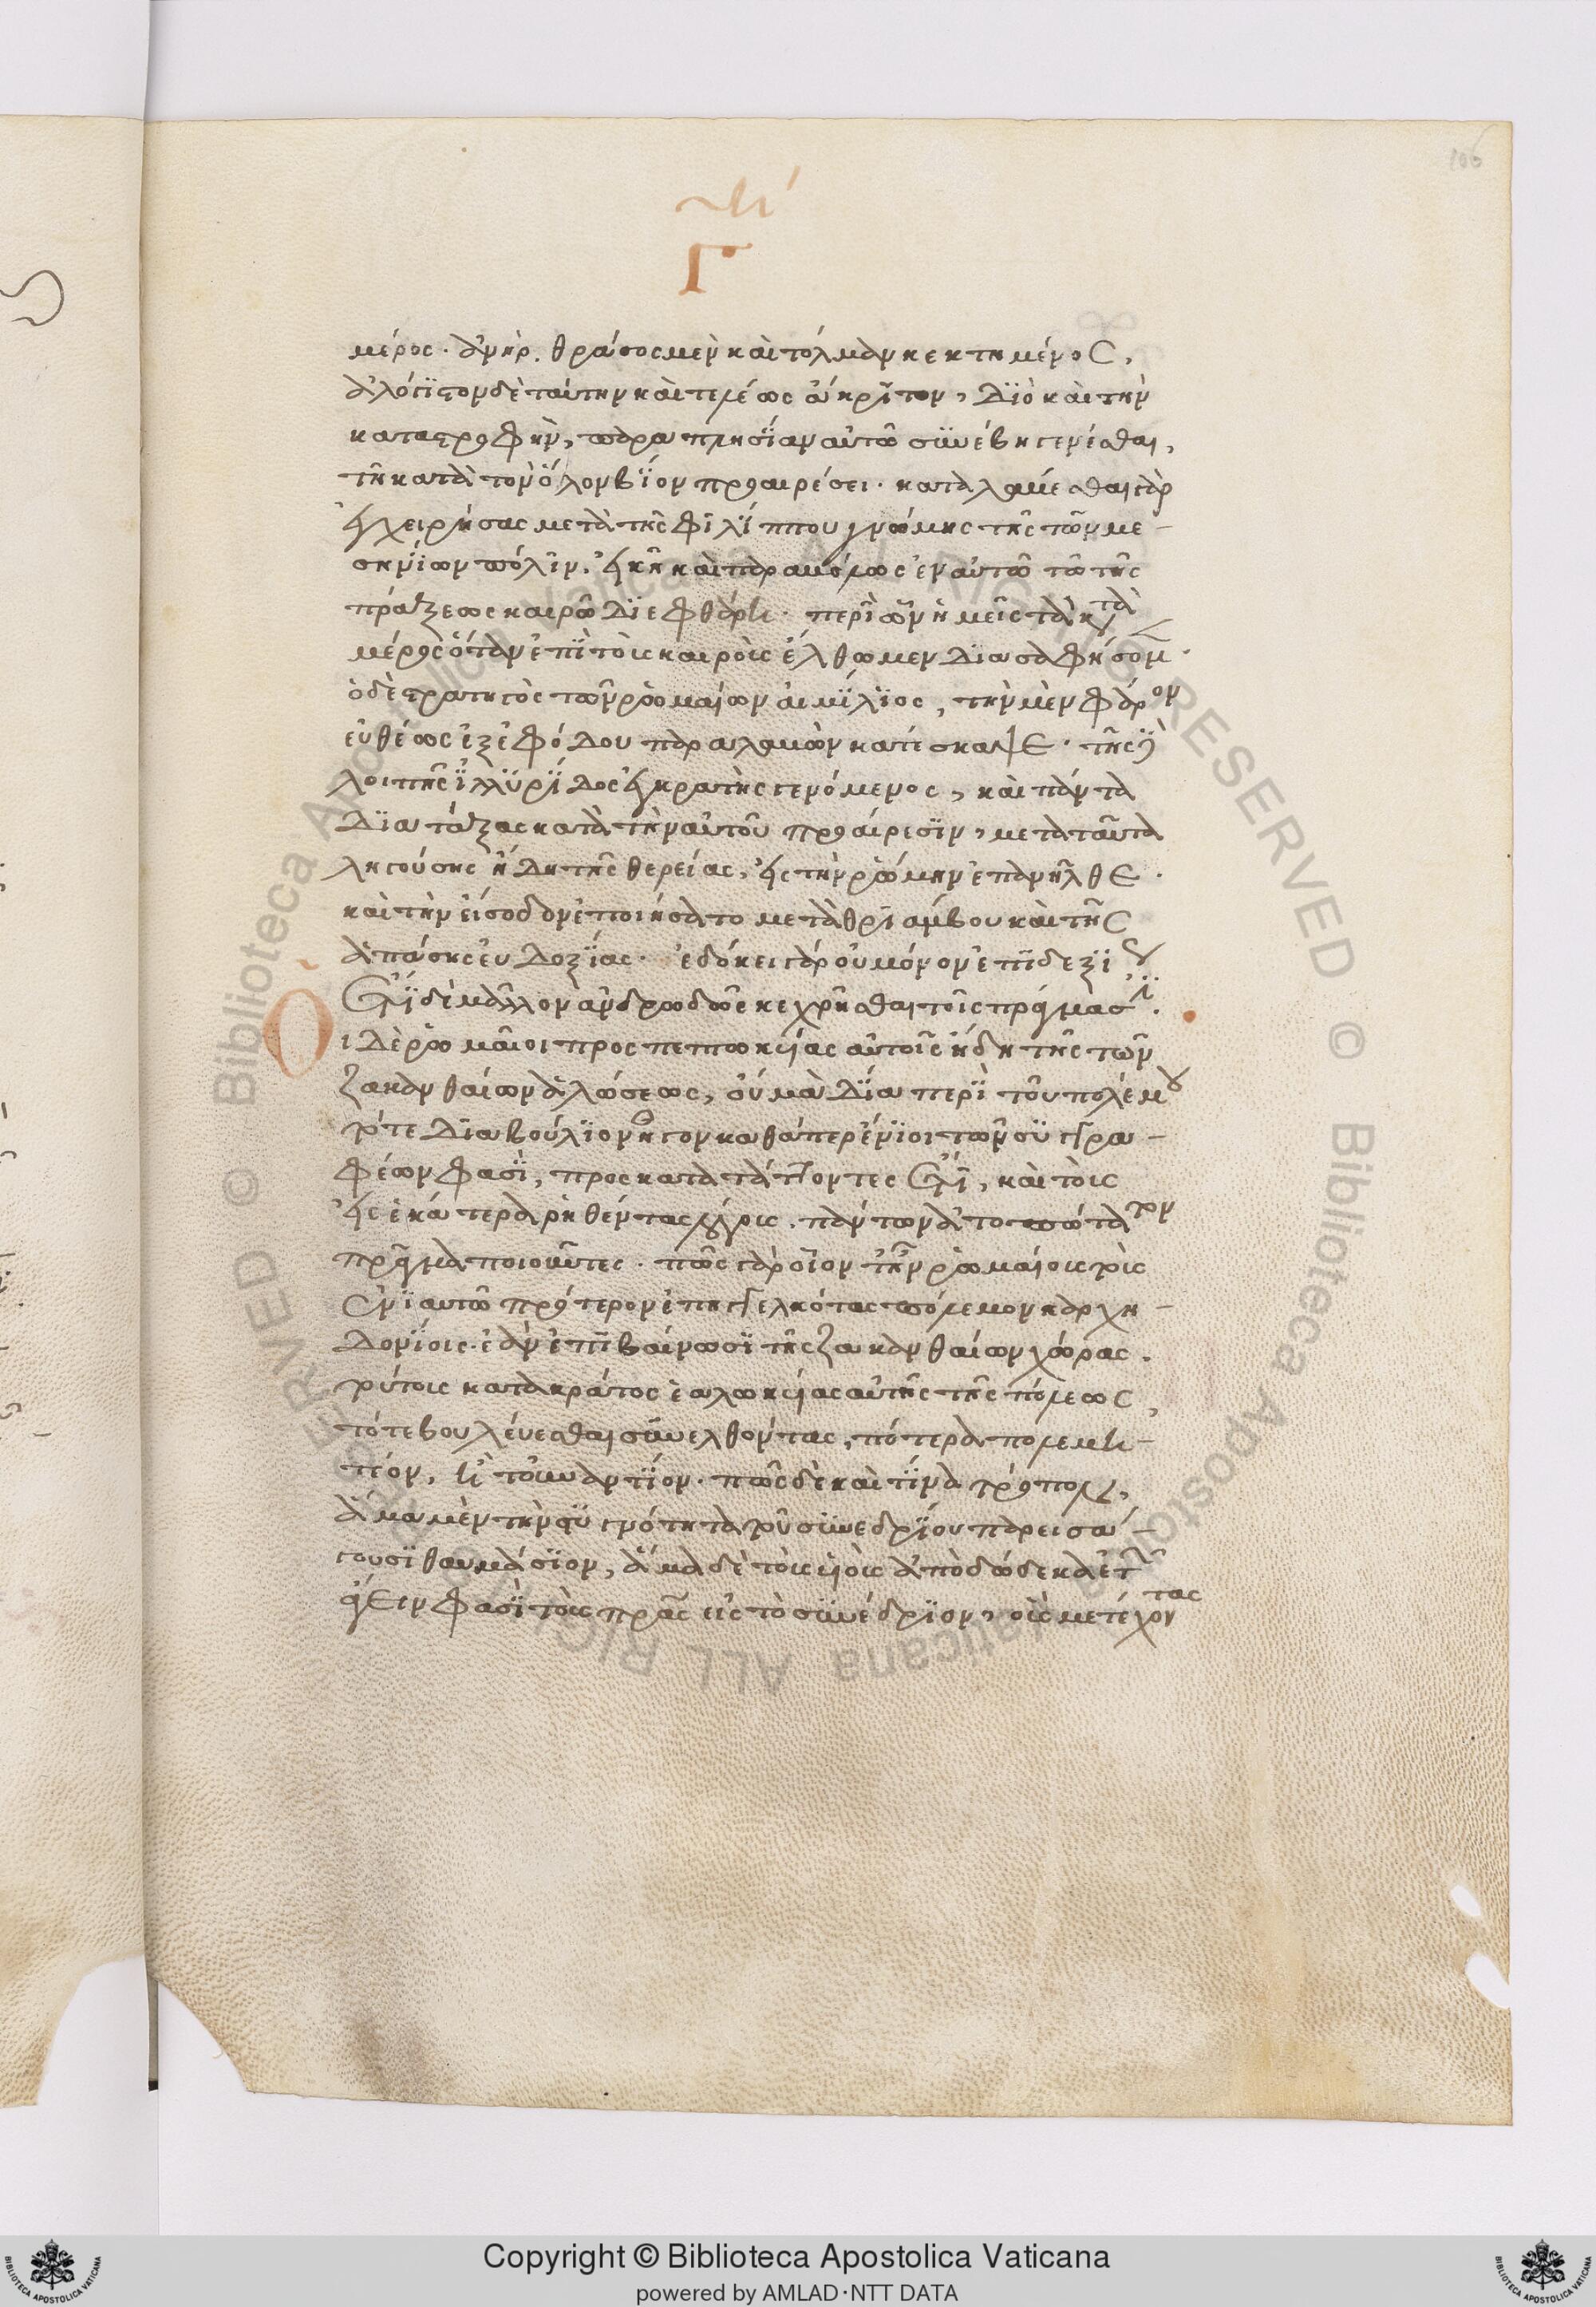 106
Γ
μέρος· ἀνὴρ. θράσος μὲν καὶ τόλμαν κεκτημένος,
ἀλόγιστον δὲ ταύτην καὶ τελέως ἄκριτον, διὸ καὶ τὴν
καταστροφὴν, παραπλησίαν αὐτῶ συνέβη γενέσθαι,
τῆ κατὰ τὸν ὅλον βίον προαιρέσει· καταλαμβέσθαι γὰρ
ἐγχειρήσας μετὰ τῆς φιλίππου γνώμης τῆς τῶν με-
σηνίων πόλιν. εἰκῆ καὶ παραβόλως ἐν αὐτῶ τῶ τῆς
πράξεως καιρῶ διεφθάρη· περὶ ὧν ἡμεῖς τὰ κατὰ
μέρος ὅταν ἐπὶ τοὺς καιροὺς ἔλθωμεν διασαφήσομ·
ὁ δὲ στρατηγὸς τῶν ῥωμαίων αἰμίλιος, τὴν μὲν φάρον
εὐθέως ἐξ ἐφόδου παραλαβὼν κατέσκαψε· τῆς δὲ
λοιπῆς ἰλλυρίδος ἐγκρατὴς γενόμενος, καὶ πάντα
διατάξας κατὰ τὴν αὐτοῦ προαίρεσιν, μετὰ ταῦτα
ληγούσης ἤδη τῆς θερείας, εἰς τὴν ῥώμην ἐπανῆλθε·
καὶ τὴν εἴσοδον ἐποιήσατο μετὰ θριάμβου καὶ τῆς
ἁπάσης εὐδοξίας· ἐδόκει γὰρ οὐ μόνον ἐπιδεξίως
ἔτι δὲ μᾶλλον ἀνδρωδῶς κεχρῆσθαι τοῖς πράγμασιν.
Οι δὲ ῥωμαῖοι προσπεπτωκυίας αὐτοῖς ἤδη τῆς τῶν
ζακανθαίων ἁλώσεως, οὐ μὰ δία περὶ τοῦ πολέμου
τότε διαβούλιον ἦγον καθάπερ ἔνιοι τῶν συγγρα-
φέων φασὶ, προσκατατάττοντες ἔτι, καὶ τοὺς
εἰς ἑκάτερα ῥηθέντας λόγους. πάντων ἀτοπώτατον
πρᾶγμα ποιοῦντες· πῶς γὰρ οἷόν τε ἦν ῥωμαίους τοὺς
ἐνιαυτῶ πρότερον ἐπηγγελκότας πόλεμον καρχη-
δονίοις· ἐὰν ἐπιβαίνωσι τῆς ζακανθαίων χώρας.
τούτους κατὰ κράτος ἑαλωκυίας αὐτῆς τῆς πόλεως,
τότε βουλεύεσθαι συνελθόντας, πότερα πολεμη-
τέον, ἢ τοὐναντίον· πῶς δὲ καὶ τίνα τρόπον,
ἅμα μὲν τὴν στυγνότητα τοῦ συνεδρίου παρεισά-
γουσι θαυμάσιον, ἅμα δὲ τοὺς υἱοὺς ἀπὸ δώδεκα ἐτῶν
ἄγειν φασὶ τοὺς πρας εἰς τὸ συνέδριον, οὓς μετέχοντας